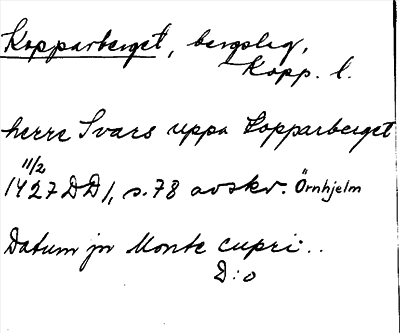 Kopparberget, bergslag,
Kopp. l.
herre Ivars uppa Copparberget
11/2
1427 DD1, s. 78 avskr. Örnhjelm
Datum jn Monte cupri..
D:o